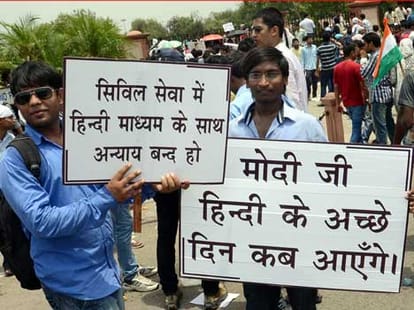 सिविल सेवा में
हिन्दी माध्यम के साथ
अन्याय बन्द हो
मोदी जी
हिन्दी के अच्छे
दिन कब आएँगे।